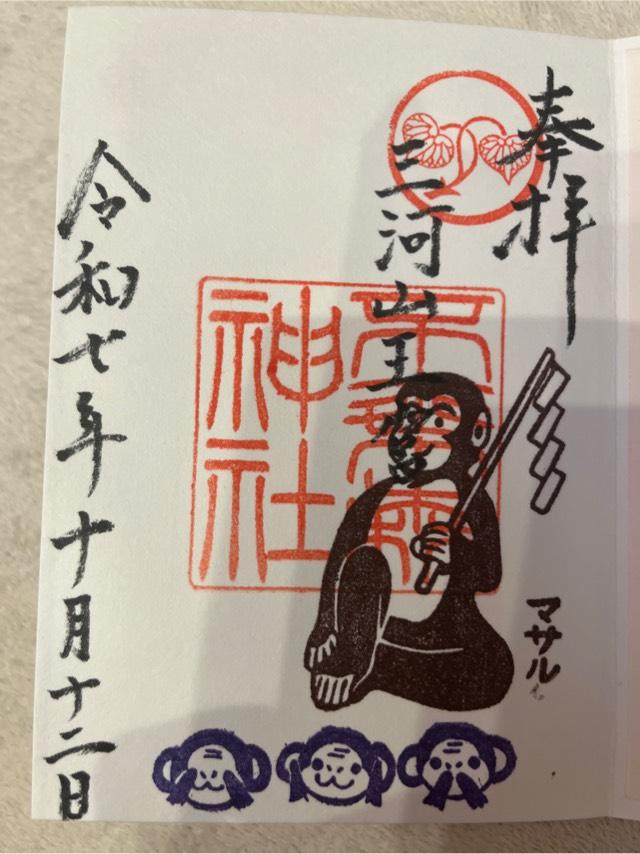 奉拝
三河山王宮
神社
マサル
令和七年十月十二日